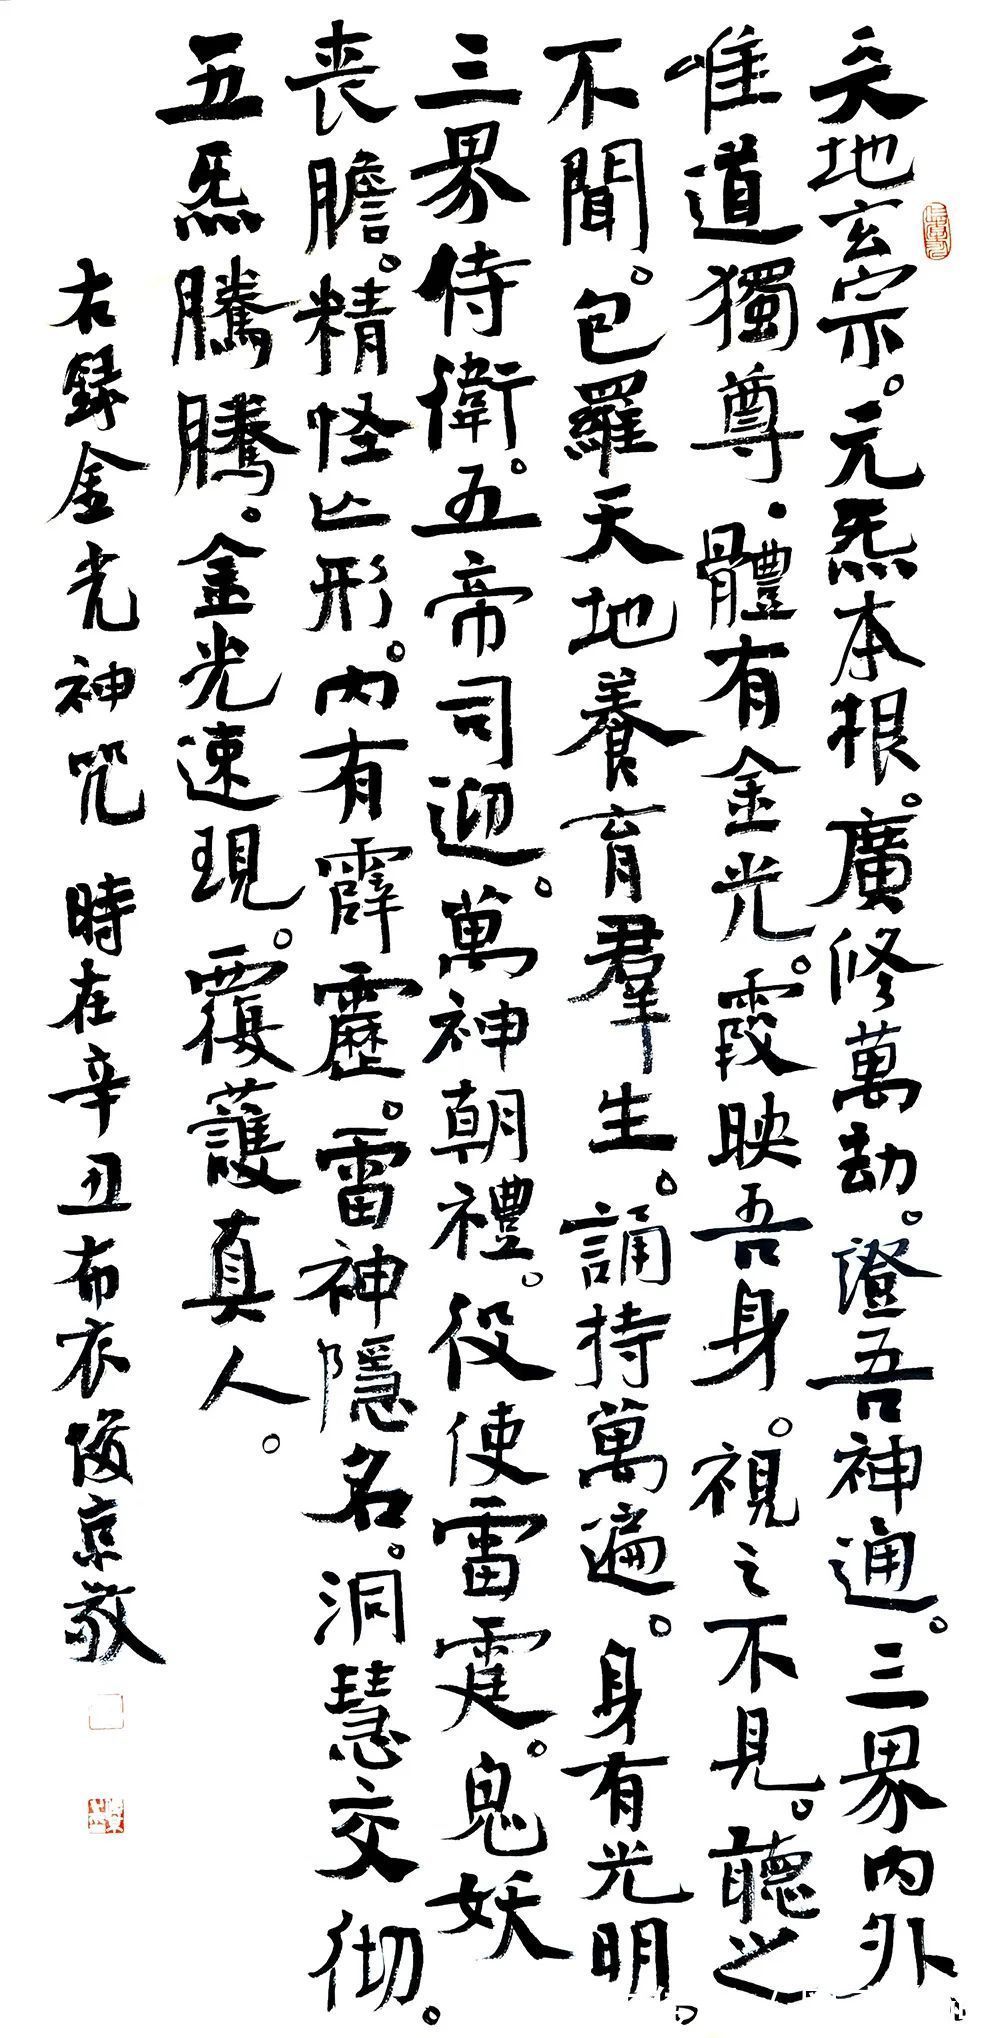 天地玄宗。元炁本根。廣修萬劫。證吾神通。三界內外
唯道獨尊。體有金光。霞映吾身。視之不見。聽之
不聞。包羅天地養育羣生。誦持萬遍。身有光明。
三界侍衛。五帝司迎。萬神朝禮。役使雷霆。鬼妖
喪膽。精怪亾形。內有霹靂。雷神隱名。洞慧交彻。
五炁騰騰。金光速現。覆護真人。
右録金光神咒 時在辛丑布衣俊京敬